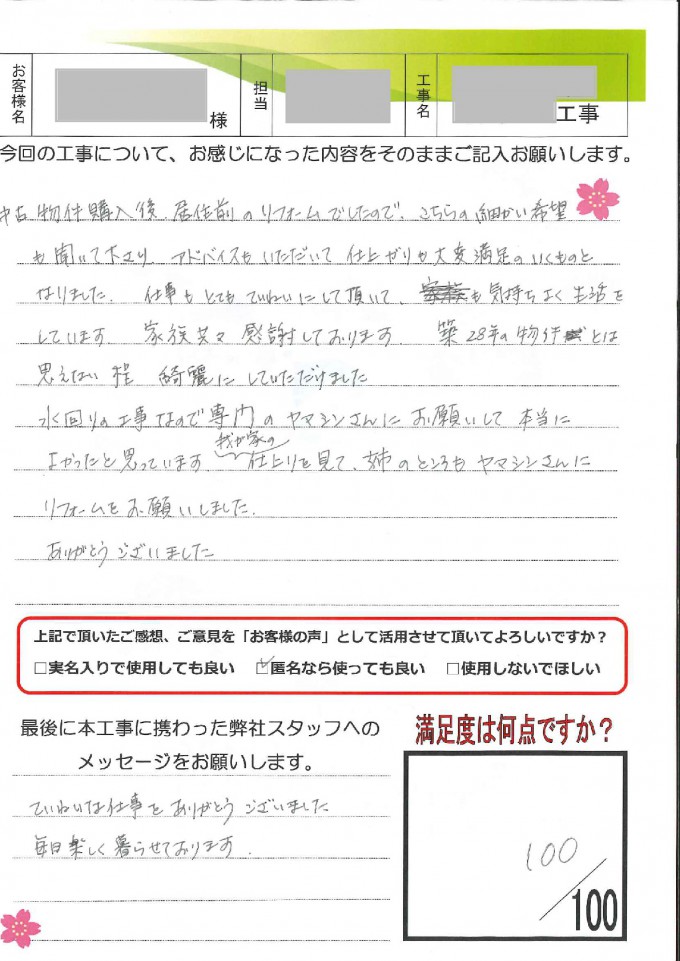 お客様名
様
担当
工事名
工事
今回の工事について、お感じになった内容をそのままご記入お願いします。
中古物件購入後、居住前のリフォームでしたので、こちらの細かい希望
も聞いて下さり、アドバイスもいただいて仕上がりも大変満足のいくものと
なりました。仕事もとてもていねいにして頂いて、も気持ちよく生活を
しています。家族共々感謝しております。築28年の物件とは
思えない程綺麗にしていただけました
水回りの工事なので専門のヤマシンさんにお願いして本当に
我が家の
よかったと思っています 仕上りを見て、姉のところもヤマシンさんに
リフォームをお願いしました。
ありがとうございました
上記で頂いたご感想、ご意見を「お客様の声」として活用させて頂いてよろしいですか？
□実名入りで使用しても良い ☑匿名なら使っても良い □使用しないでほしい
最後に本工事に携わった弊社スタッフへの
メッセージをお願いします。
ていねいな仕事をありがとうございました
毎日楽しく暮らせております。
満足度は何点ですか？
100/100